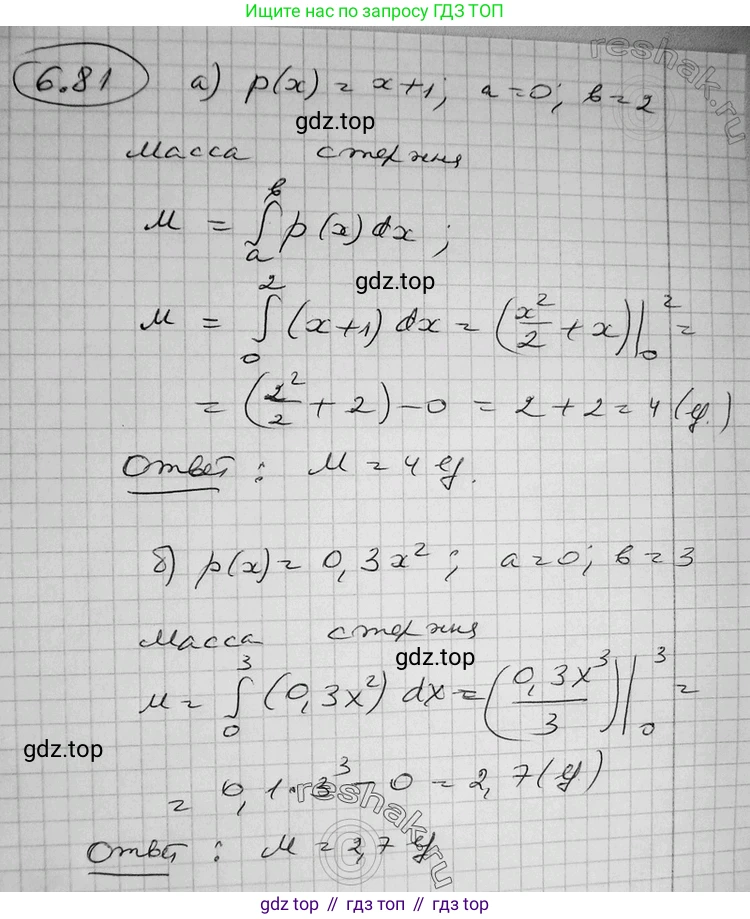 Ищите нас по запросу ГДЗ ТОП
6.81 а) p(x) = x+1; a=0; в=2
gdz.top
reshak.ru
Масса стержня
M = ∫ₐᵇ p(x) dx;
gdz.top
M = ∫₀² (x+1) dx = (x²/2 + x)|₀² =
= (2²/2 + 2) - 0 = 2 + 2 = 4 (г.)
Ответ: M = 4 г.
б) p(x) = 0,3x²; a=0; в=3
Масса стержня
gdz.top
M = ∫₀³ (0,3x²) dx = (0,3x³/3)|₀³ =
gdz.top
= 0,1·3³ - 0 = 2,7 (г)
reshak.ru
Ответ: M = 2,7 г
gdz.top // гдз.топ // gdz.top